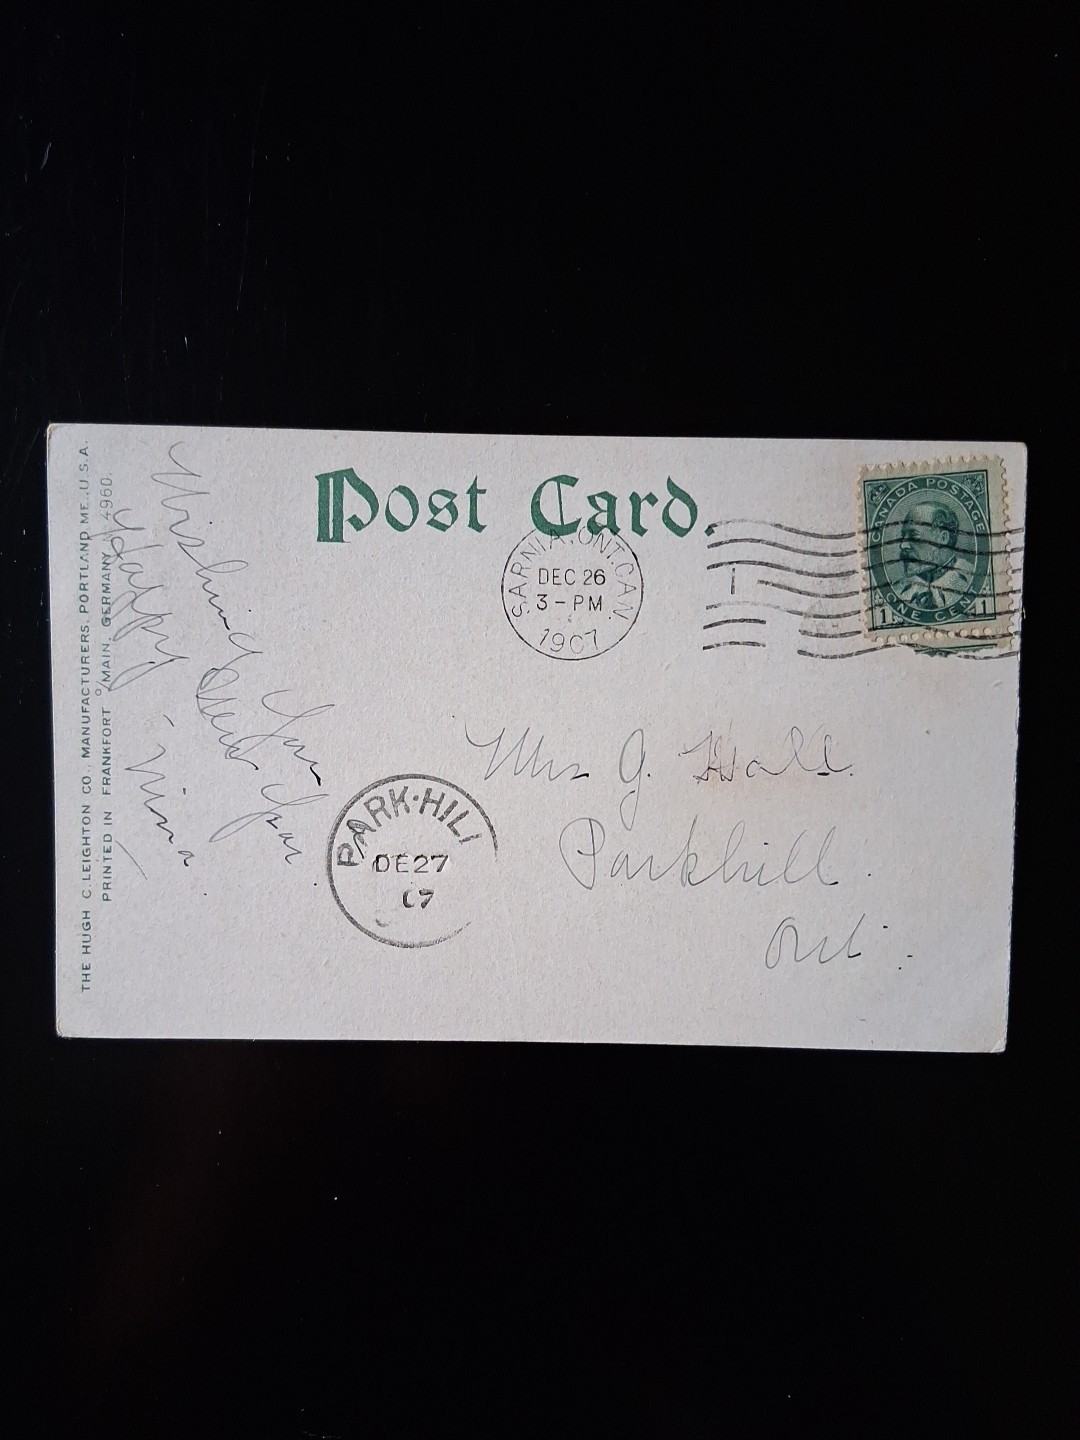 Post Card.
CANADA POSTAGE
1 ONE CENT 1
SARNIA, ONT. CAN.
DEC 26
3 - PM
1907
1
Mrs G. Hall.
Parkhill.
Ont.
PARK-HILL
DE 27
07
Wishing You
a
Happy New Year
- Nina.
THE HUGH C. LEIGHTON CO., MANUFACTURERS, PORTLAND, ME., U.S.A.
PRINTED IN FRANKFORT o/MAIN, GERMANY. 4960.